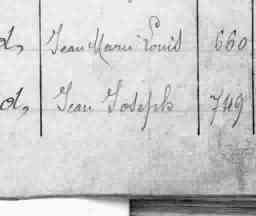 d, Jean Marie Louis 660
d, Jean Joseph 749